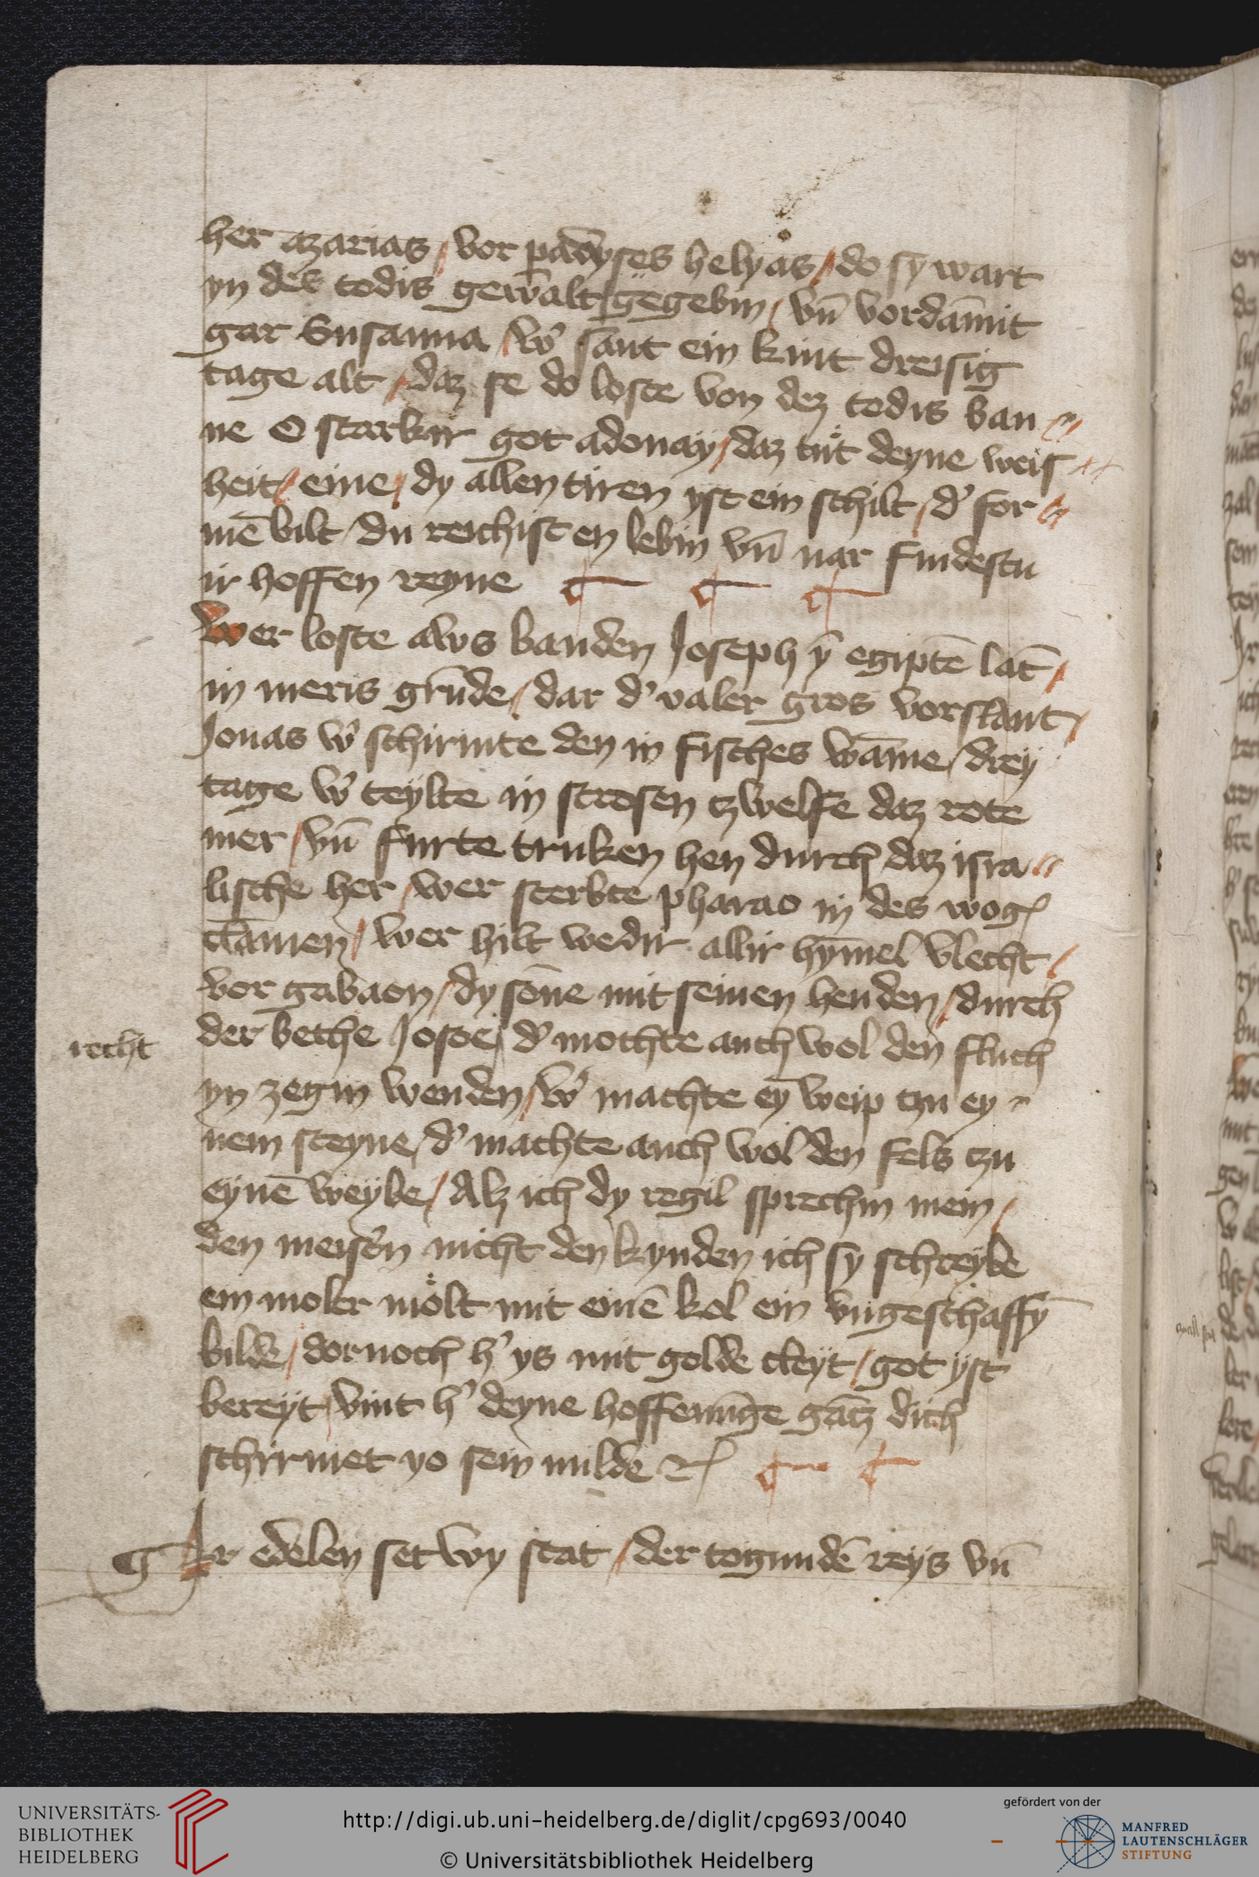 her azarias / vor padyses helyas / do sy wart
yn des todis gewalt gegebin / vn̄ vordāmit
gar Susanna / w' sant ein kint dreisig
tage alt / daz se do loste von dez todis ban
ne O starkir got adonay / daz tut deyne weis
heit / eine / dy allen tiren yst ein schilt / d' for
mē bilt / du reichist en lebin vn̄ nar findestu
ir hoffen reyne
Wer loste aws banden Joseph ȳ egiptē lāt /
in meris grūde / dar d' valer gros vorslant /
Jonas w' schirmte den in fisches wāme / drey
tage w' teylte in strosen tzwelfe daz rote
mer / vn̄ furte truken hen durch daz isra
lische her / wer sterbte pharao in des wog
clamen / wer hilt wedir allir hȳmel vlecht /
vor gabaon / dy sōne mit seinen henden / durch
der bethe Josoe / d' mochte auch wol den fluch
recht
yn zegin wenden / w' machte ey weip tzu ey
nem steyne / d' machte auch wol den fels tzu
eynē weybe / Alz ich dy regil sprechin mein /
den meist'n nicht den kynden ich sy schreybe
ein moler molt mit einē kol ein vngeschaffȳ
bilde / dornoch h' ys mit golde cleyt / got yst
bereyt / vint h' deyne hoffenūge gātz dich
schirmet yo sein milde
Er edelen set wy stat / der togundē reys vn̄
UNIVERSITÄTS-
BIBLIOTHEK
HEIDELBERG
http://digi.ub.uni-heidelberg.de/diglit/cpg693/0040
© Universitätsbibliothek Heidelberg
gefördert von der
MANFRED
LAUTENSCHLÄGER
STIFTUNG